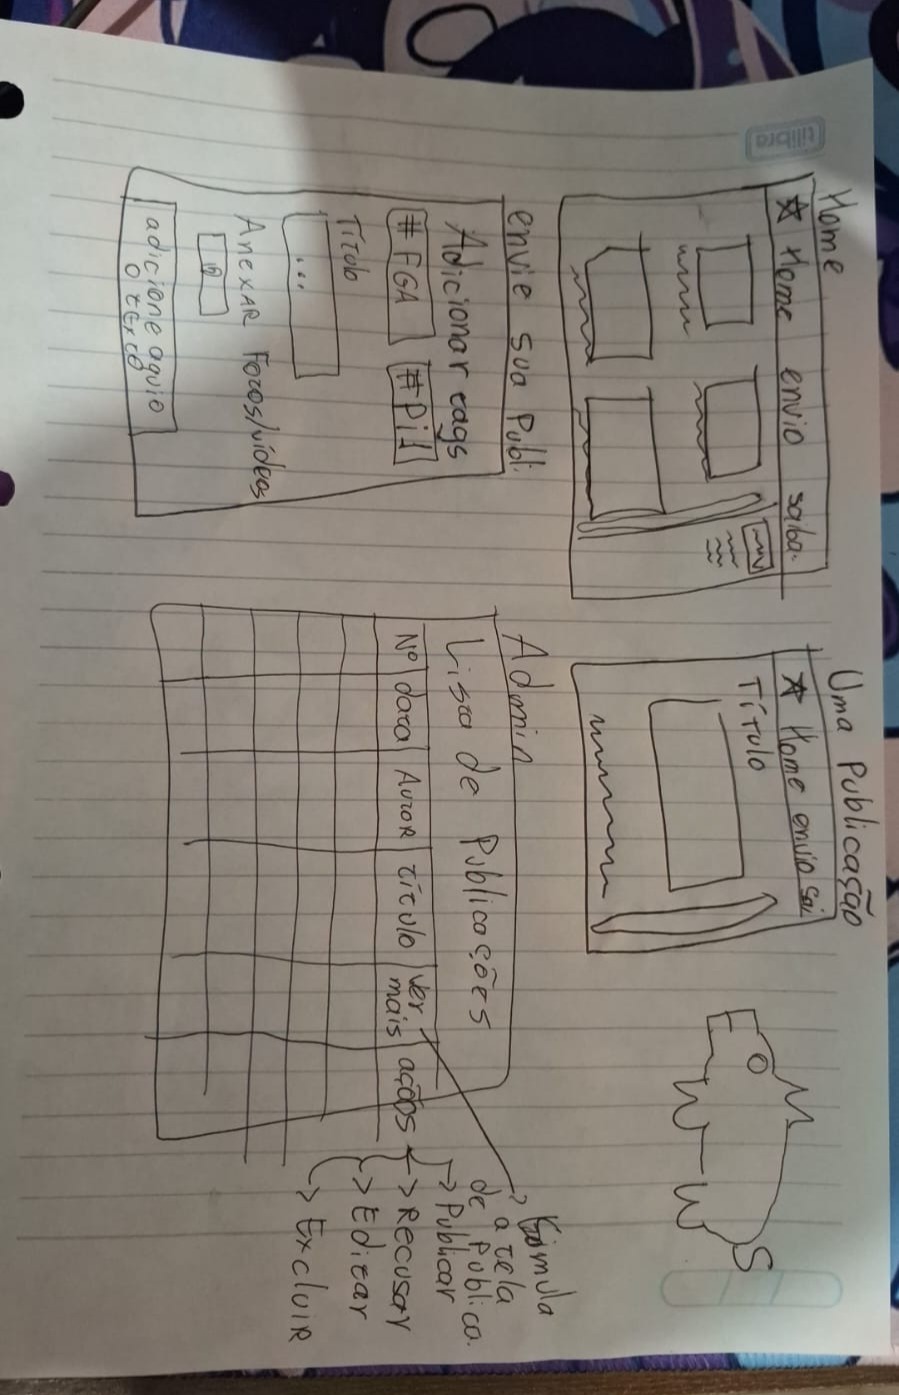 tilibra
Home
Home envio saiba.
Uma Publicação
Home envio sai
Título
envie sua Publ.
Adicionar tags
#FGA #Pi1
Título
...
Anexar Fotos/vídeos
adicione aquio
o texto
Admin
Lista de Publicações
Nº data Autor título ver mais ações
Simula
a tela
de publica.
Publicar
Recusar
Editar
Excluir